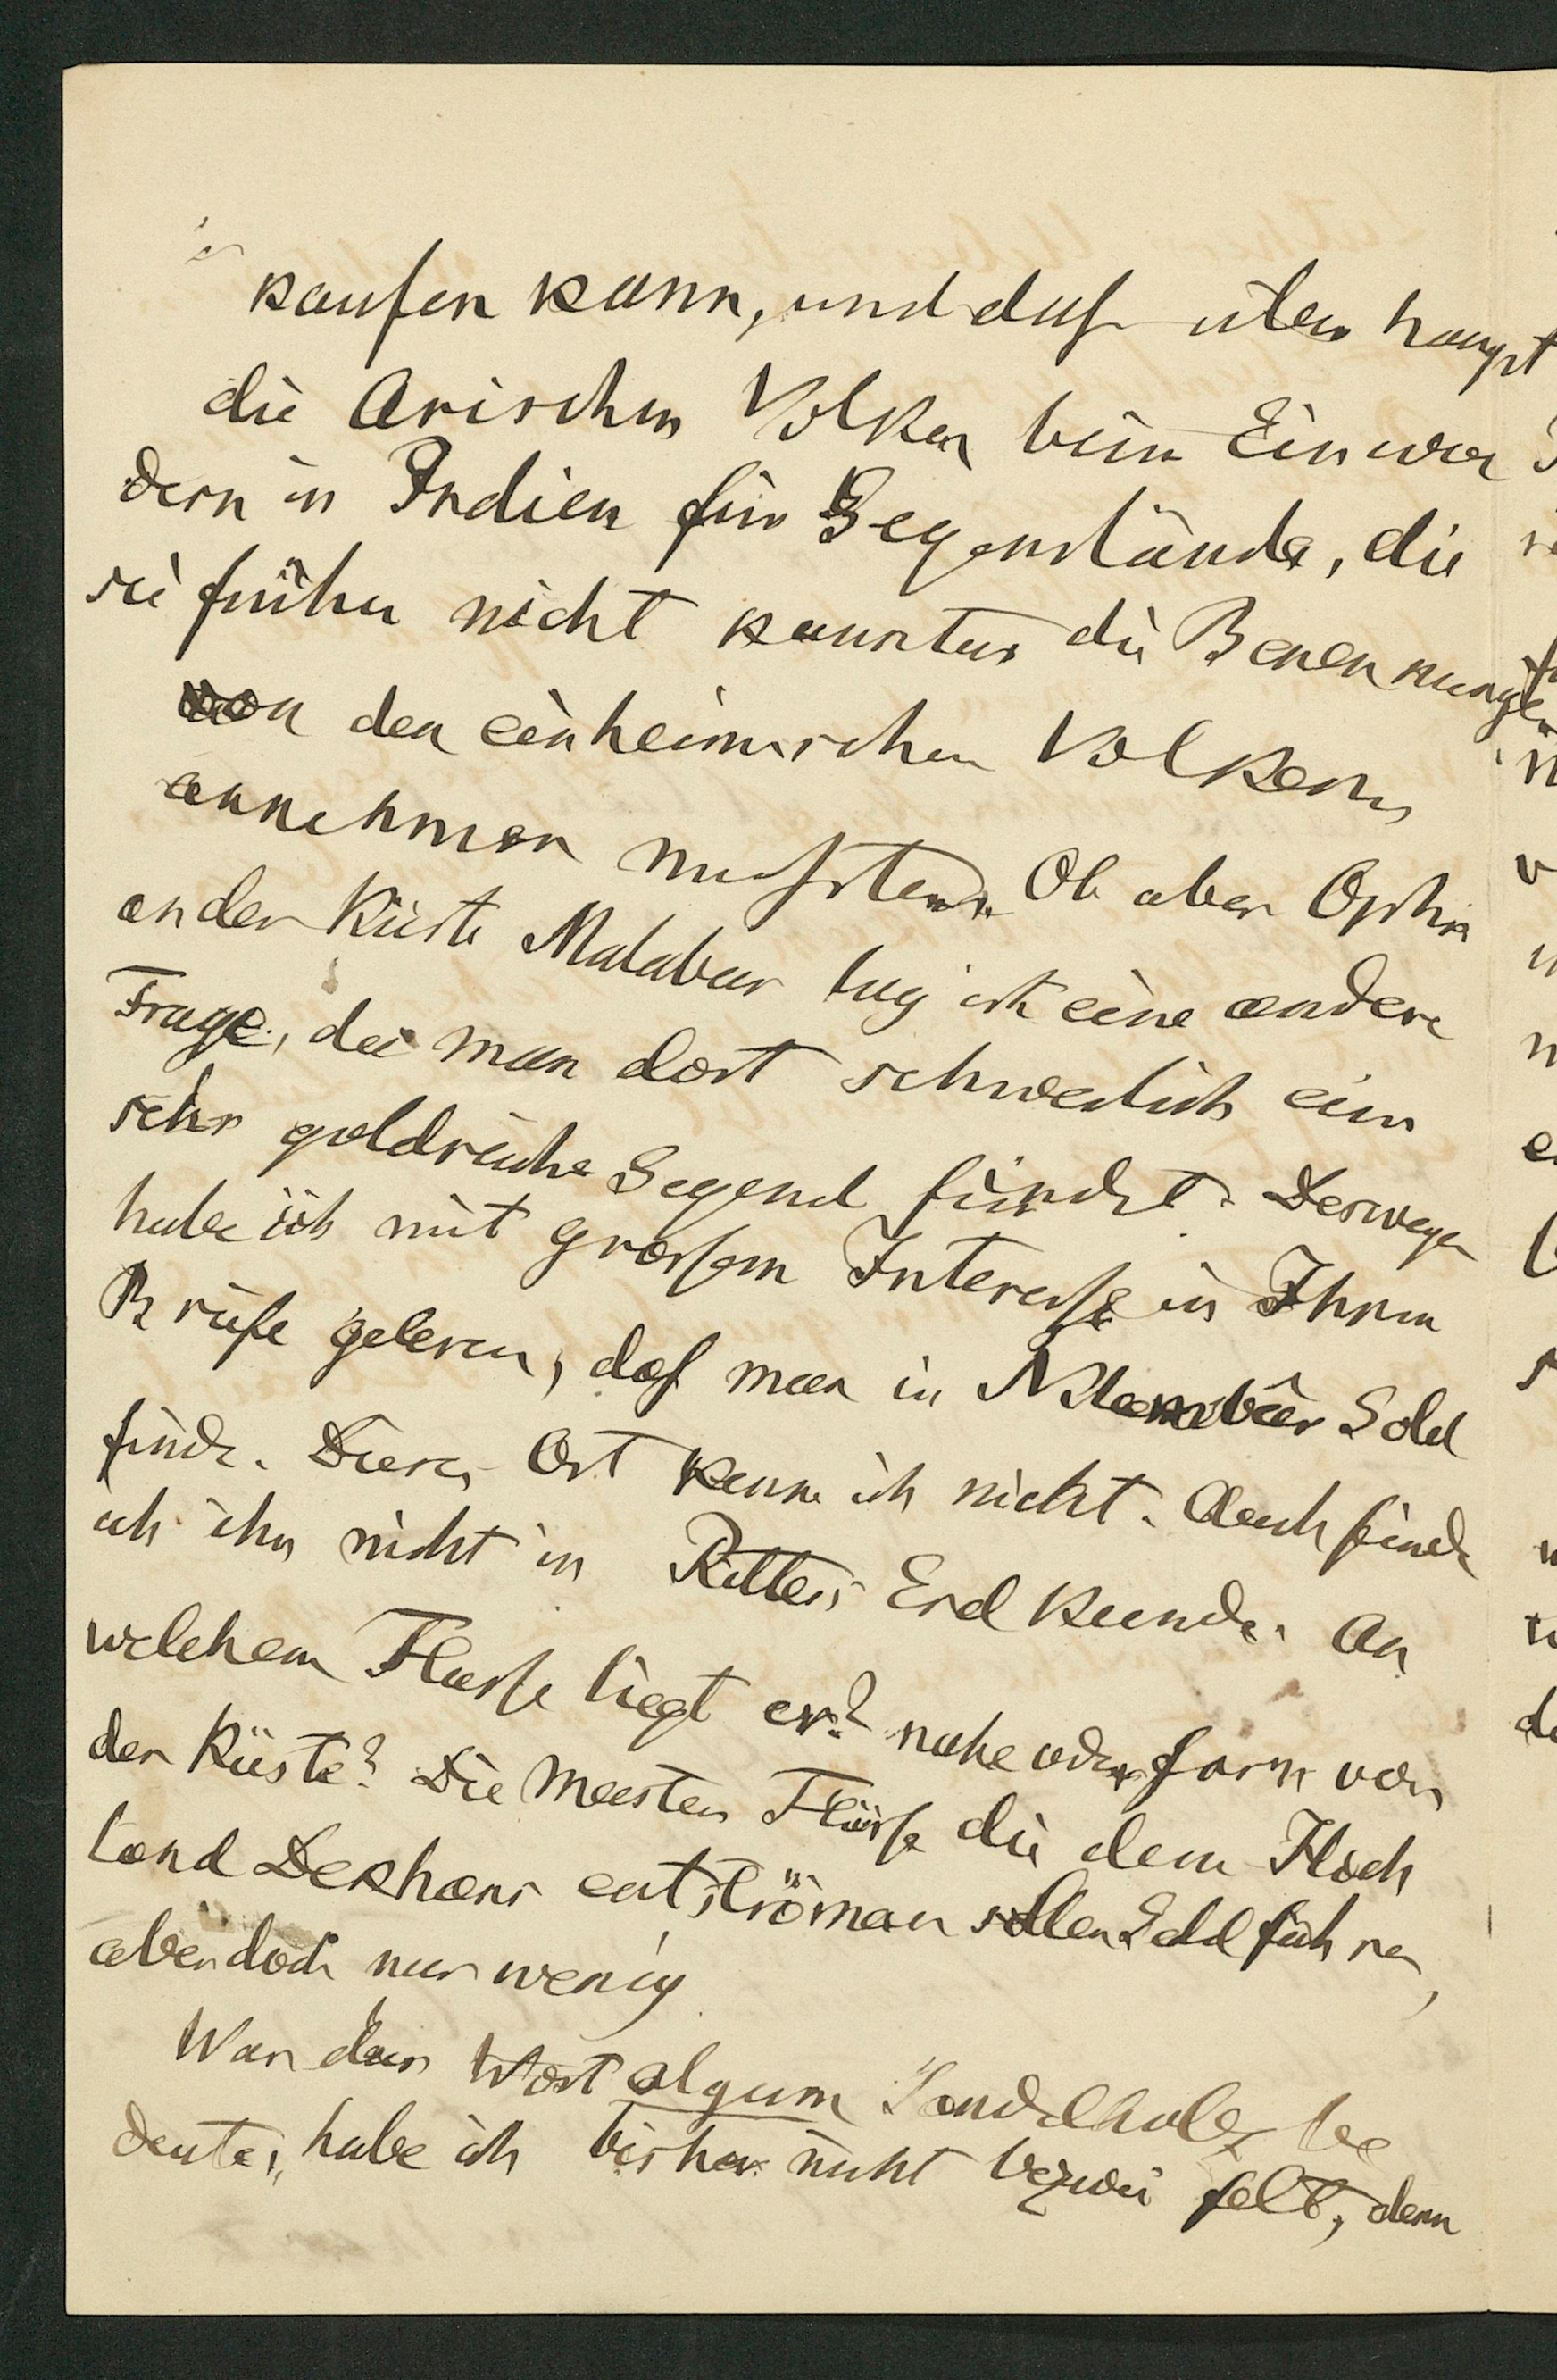 kaufen kann, und daß über haupt
die Arischen Volker beim Einwan
dern in Indien für Gegenstände, die
sie früher nicht kannten die Benennungen
von den einheimischen Volkern
annehmen mußten. Ob aber Ophir
an der Küste Malabar lag ist eine andere
Frage, da man dort schwerlich eine
sehr goldreiche Gegend findet. Deswegen
habe ich mit großem Interesse in Ihrem
Briefe gelesen, daß man in Gold
finde. Diesen Ort kenne ich nicht. Auch finde
ich ihn nicht in Ritters Erdkunde. An
welchem Flusse liegt er? nahe oder fern von
der Küste? Die meisten Flüsse die dem Hoch
land Dekhans entströmen sollen Gold führen,
aber doch nur wenig
Was das Wort algum Sandelholz be
deutet, habe ich bisher nicht bezwei felt, denn